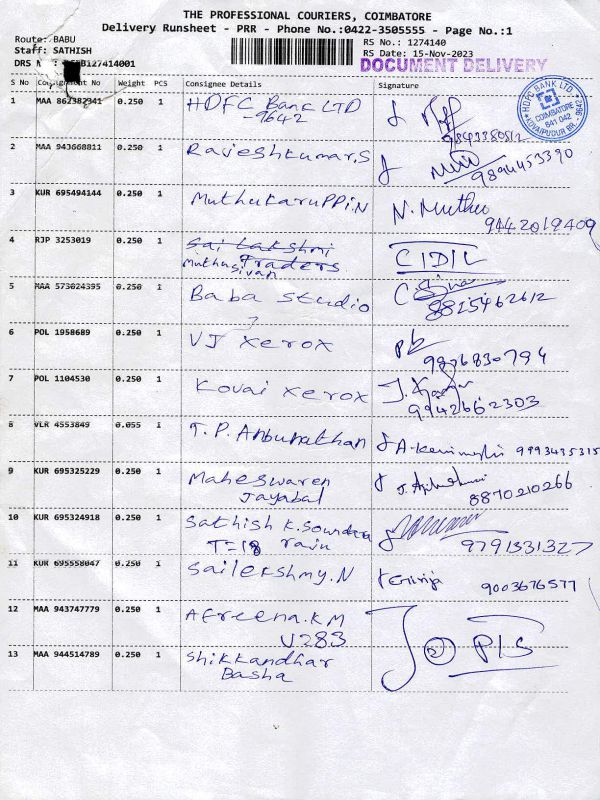 THE PROFESSIONAL COURIERS, COIMBATORE
Delivery Runsheet - PRR - Phone No.:0422-3505555 - Page No.:1
Route: BABU
RS No.: 1274140
Staff: SATHISH
RS Date: 15-Nov-2023
DRS N 127414001
DOCUMENT DELIVERY
S No Consignment No Weight PCS Consignee Details Signature
1 MAA 862382341 0.250 1 HDFC Bank LTD
-9642
9843380512
HDFC BANK LTD.
COIMBATORE
641 042
2 MAA 943668811 0.250 1 Rajeshkumar.S
9894453390
3 KUR 695494144 0.250 1 Muthukaruppi.N N. Muthu
9442019409
4 RJP 3253019 0.250 1 Sai Lakshmi CIDIL
Traders
Muthusivan
5 MAA 573024395 0.250 1 Baba Studio
9825462612
6 POL 1958689 0.250 1 VJ Xerox
9876830794
7 POL 1104530 0.250 1 Kovai Xerox
9942662303
8 VLR 4553849 0.055 1 T.P. Anbunathan 9993435315
9 KUR 695325229 0.250 1 Maheswaren
Jayabal
8870210266
10 KUR 695324918 0.250 1 Sathish K. Soundara
T=18 raju 9791331327
11 KUR 695558047 0.250 1 Sailekshmy.N Girija
9003676577
12 MAA 943747779 0.250 1 Afreena.KM
U283
13 MAA 944514789 0.250 1 Shikkandhar
Basha